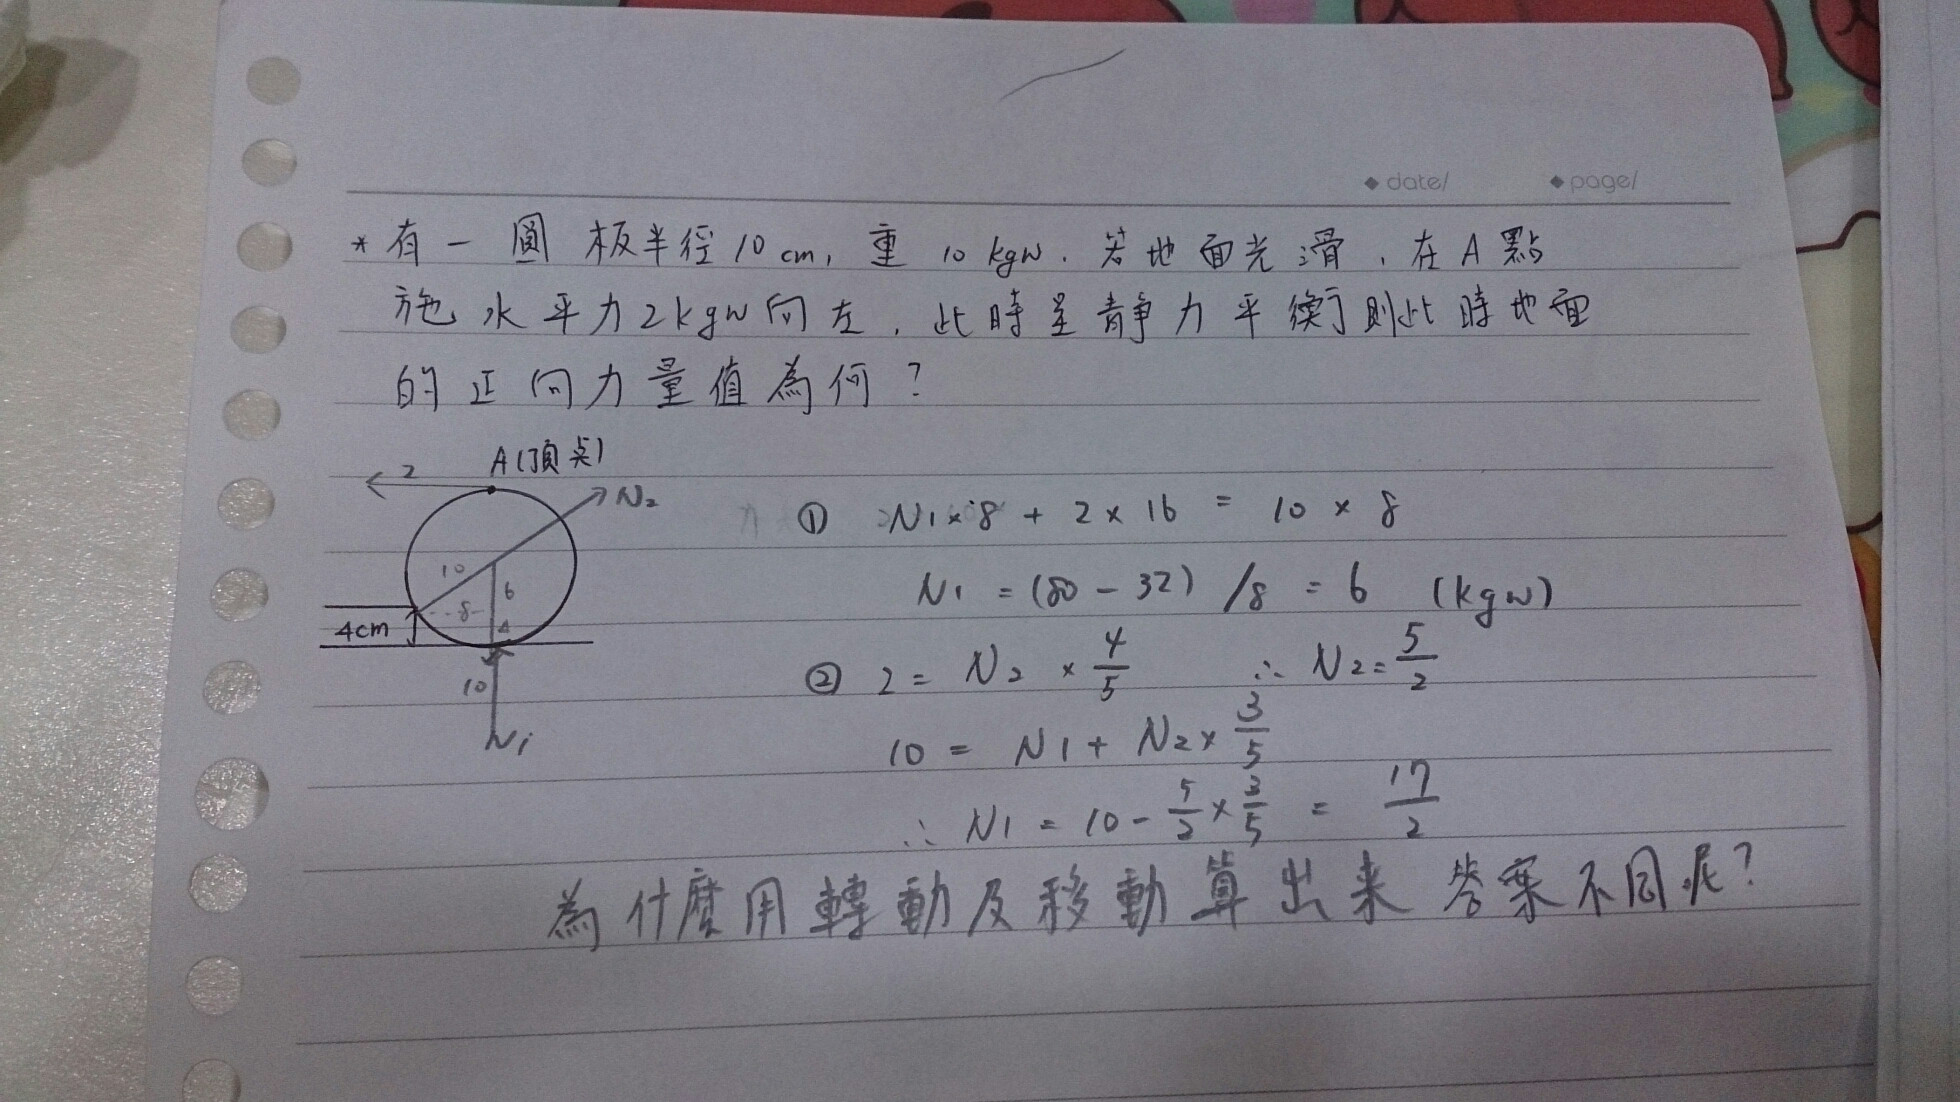 ◆ date/ ◆ page/
* 有一圓板半徑10cm, 重10kgw. 若地面光滑, 在A點
施水平力2kgw向左, 此時呈靜力平衡則此時地面
的正向力量值為何?
A(頂点)
2
N₂
10
6
8
4cm
4
10
N₁
① N₁×8 + 2×16 = 10×8
N₁ = (80-32)/8 = 6 (kgw)
② 2 = N₂ × 4/5 ∴ N₂ = 5/2
10 = N₁ + N₂ × 3/5
∴ N₁ = 10 - 5/2 × 3/5 = 17/2
為什麼用轉動及移動算出来答案不同呢?